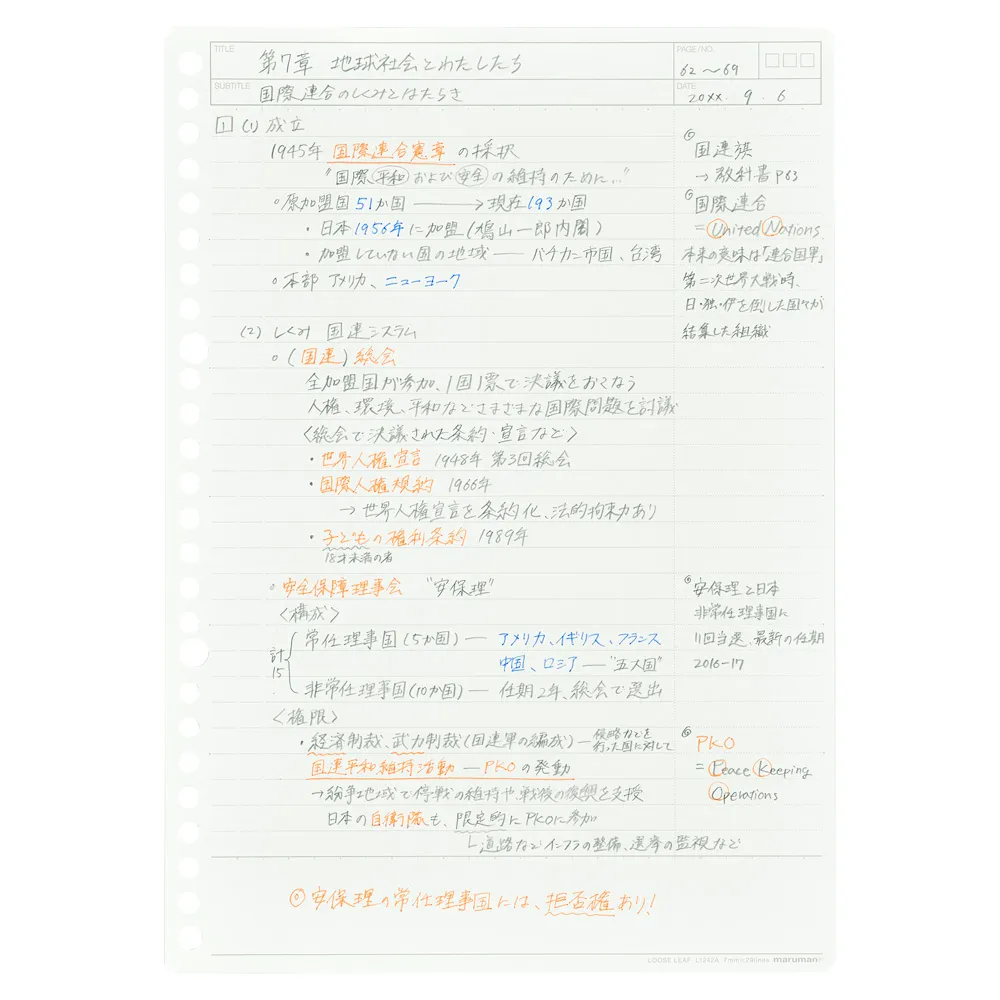 TITLE
第7章 地球社会とわたしたち
PAGE/NO.
62〜69
SUBTITLE
国際連合のしくみとはたらき
DATE
20XX. 9. 6
1 (1) 成立
1945年 国際連合憲章 の採択
"国際平和および安全の維持のために…"
○原加盟国 51か国 → 現在193か国
・日本1956年に加盟(鳩山一郎内閣)
・加盟していない国の地域 ― バチカン市国、台湾
○本部 アメリカ、ニューヨーク
国連旗
→ 教科書P63
国際連合
= United Nations
本来の意味は「連合国軍」
第二次世界大戦時、
日・独・伊を倒した国々が
結集した組織
(2) しくみ 国連システム
○(国連)総会
全加盟国が参加、1国1票で決議をおこなう
人権、環境、平和などさまざまな国際問題を討議
〈総会で決議された条約・宣言など〉
・世界人権宣言 1948年 第3回総会
・国際人権規約 1966年
→ 世界人権宣言を条約化、法的拘束力あり
・子どもの権利条約 1989年
18才未満の者
○安全保障理事会 "安保理"
〈構成〉
計15
常任理事国(5か国) ― アメリカ、イギリス、フランス
中国、ロシア ― "五大国"
非常任理事国(10か国) ― 任期2年、総会で選出
安保理と日本
非常任理事国に
11回当選、最新の任期
2016-17
〈権限〉
・経済制裁、武力制裁(国連軍の編成) ― 侵略などを
行った国に対して
国連平和維持活動 ― PKOの発動
→紛争地域で停戦の維持や、戦後の復興を支援
日本の自衛隊も、限定的にPKOに参加
└道路などインフラの整備、選挙の監視など
PKO
= Peace Keeping
Operations
◎安保理の常任理事国には、拒否権あり!
LOOSE LEAF L1242A 7mm×29lines maruman